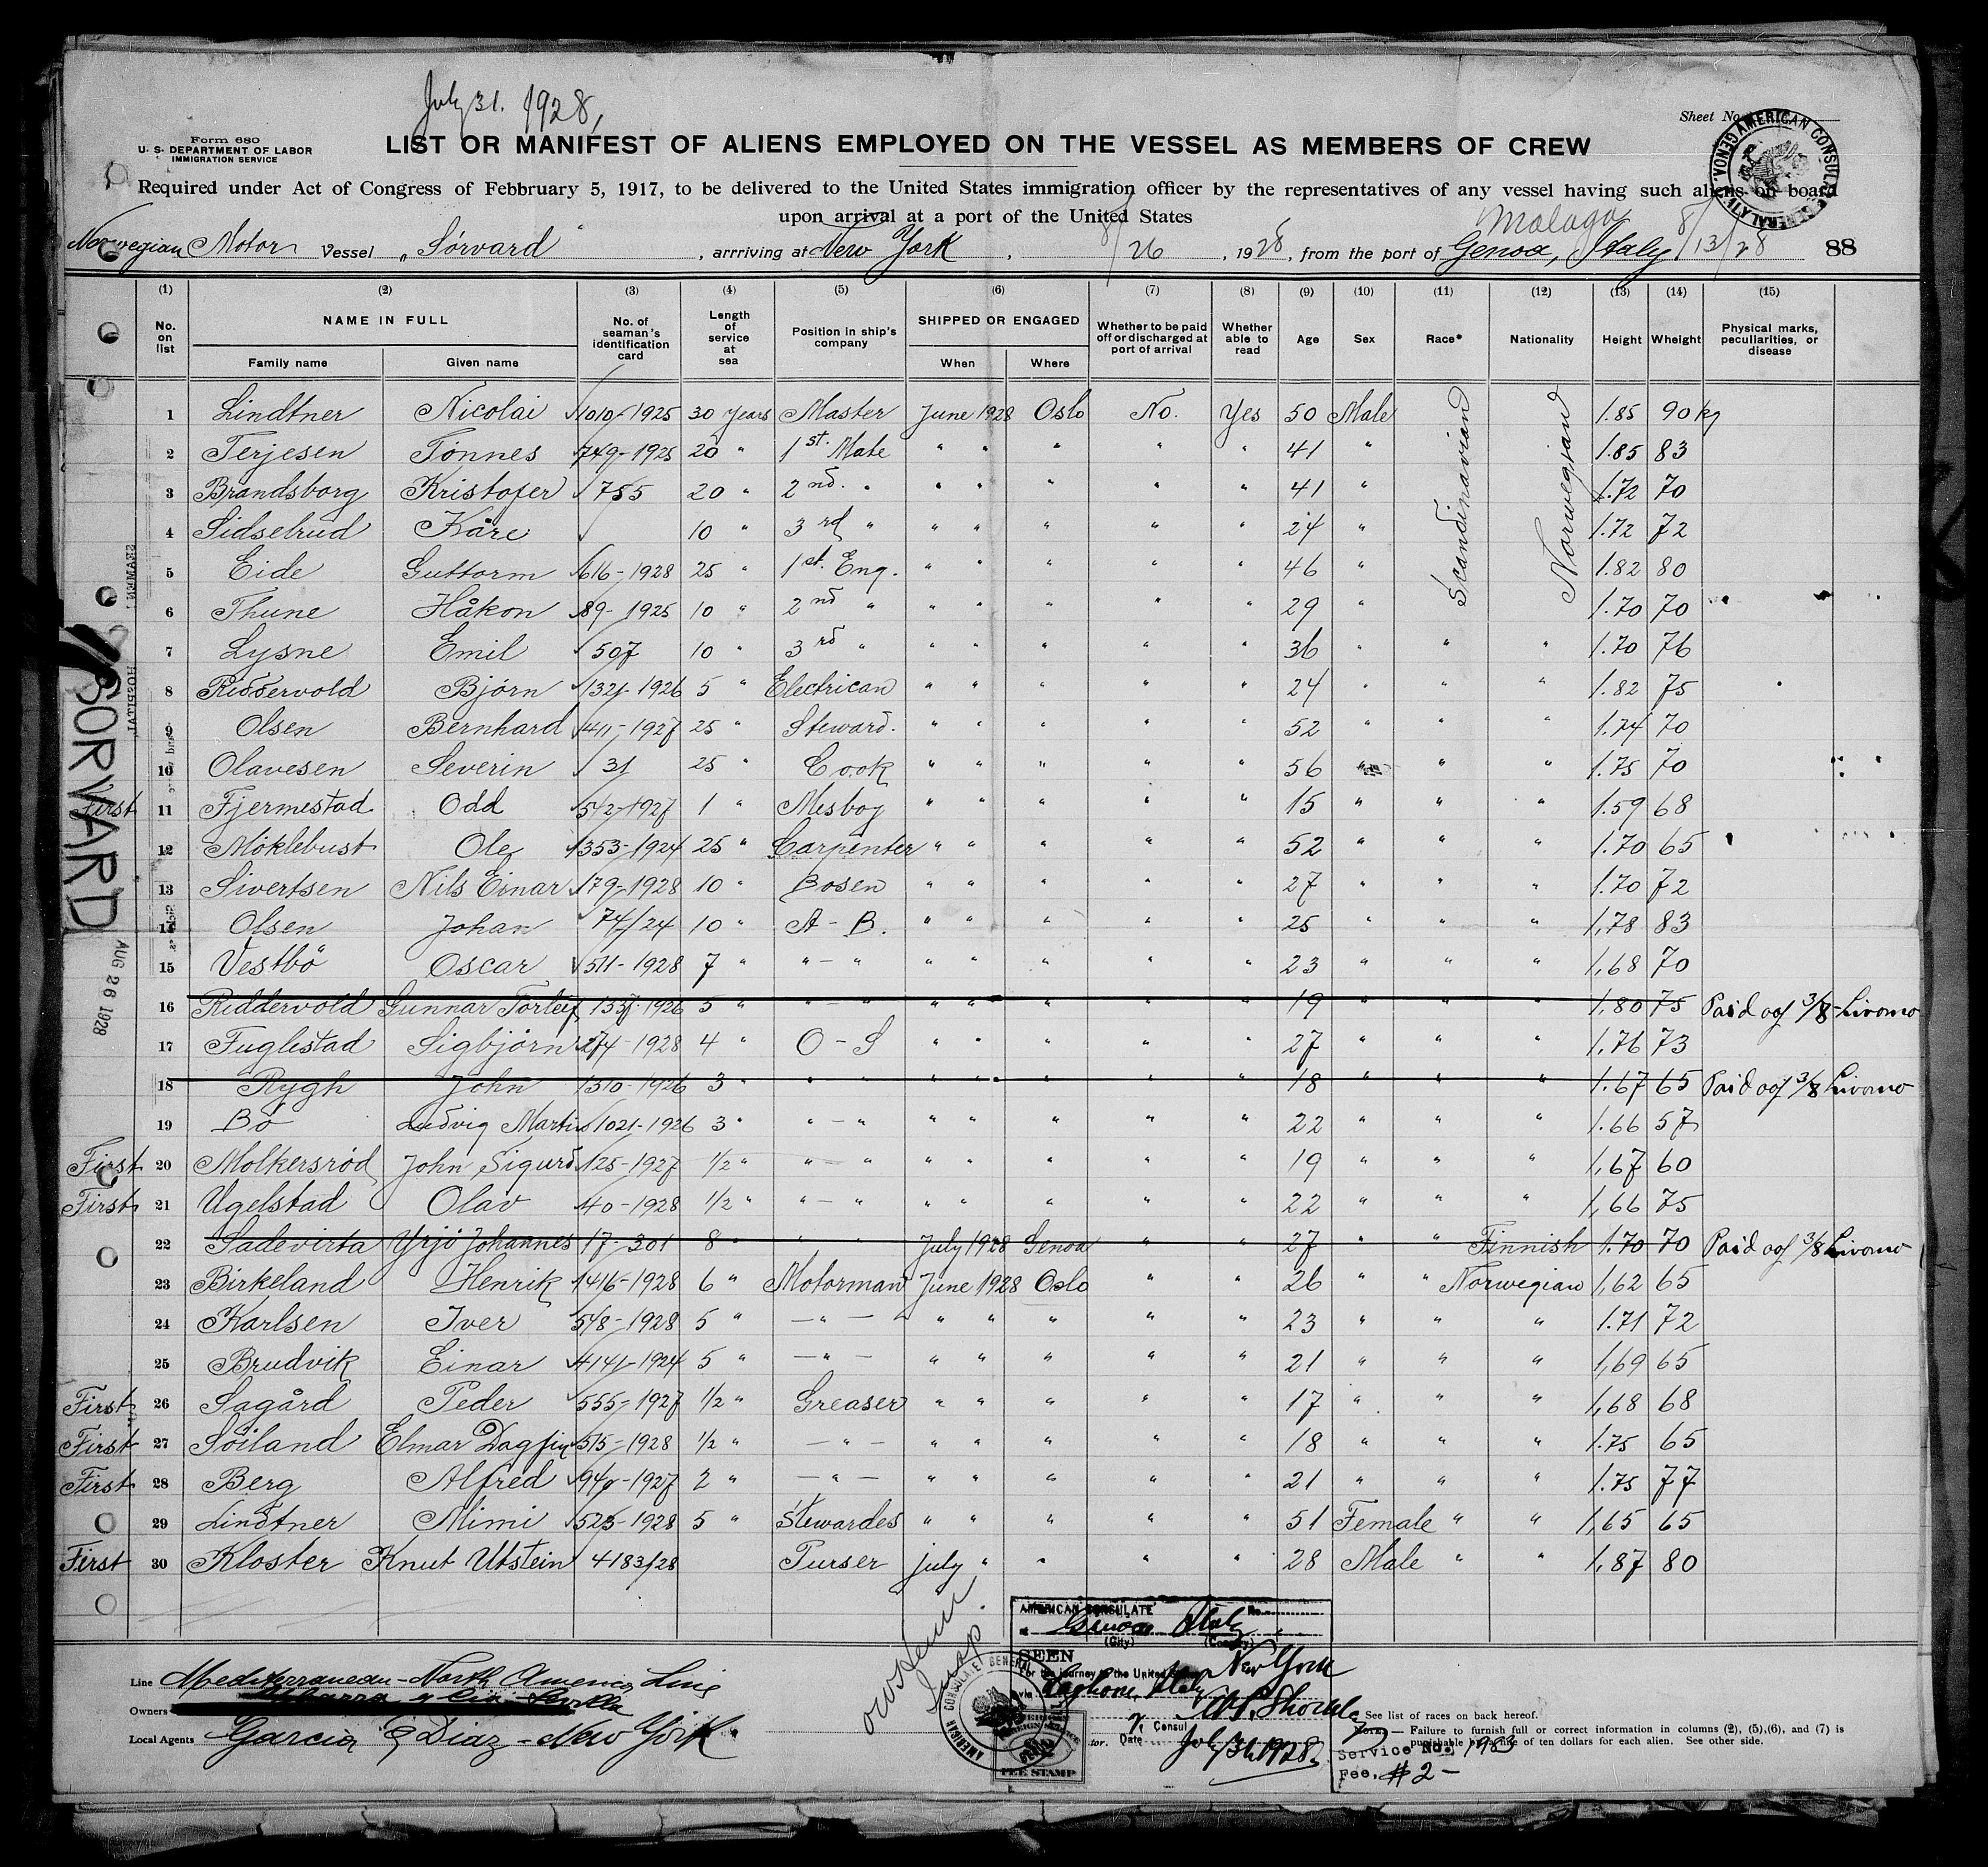 July 31. 1928,
Sheet No.
Form 680
U. S. DEPARTMENT OF LABOR
IMMIGRATION SERVICE
LIST OR MANIFEST OF ALIENS EMPLOYED ON THE VESSEL AS MEMBERS OF CREW
AMERICAN CONSULATE GENERAL GENOA,
Required under Act of Congress of Febbruary 5, 1917, to be delivered to the United States immigration officer by the representatives of any vessel having such aliens on board
upon arrival at a port of the United States
Malaga
Norwegian Motor Vessel „Sörvard" , arrriving at New York , 8/26 , 1928, from the port of Genoa, Italy 8/13/28 88
(1) (2) (3) (4) (5) (6) (7) (8) (9) (10) (11) (12) (13) (14) (15)
No. on list NAME IN FULL Family name Given name No. of seaman's identification card Length of service at sea Position in ship's company SHIPPED OR ENGAGED When Where Whether to be paid off or discharged at port of arrival Whether able to read Age Sex Race* Nationality Height Wheight Physical marks, peculiarities, or disease
1 Lindtner Nicolai 1010-1925 30 years Master June 1928 Oslo No. Yes 50 Male Scandinavian Norwegian 1.85 90 kg
2 Terjesen Tönnes 749-1925 20 " 1st. Mate " " " " " 41 " 1.85 83
3 Brandsborg Kristofer 755 20 " 2nd. " " " " " " 41 " 1.72 70
4 Sidsebrud Kåre 10 " 3rd " " " " " " 24 " 1.72 72
5 Eide Guttorm 616-1928 25 " 1st. Eng. " " " " " 46 " 1.82 80
6 Thune Håkon 89-1925 10 " 2nd " " " " " " 29 " 1.70 70
7 Lysne Emil 507 10 " 3rd " " " " " " 36 " " " 1.70 76
8 Riddervold Björn 1321-1926 5 " Electrican " " " " " 24 " " " 1.82 75
9 Olsen Bernhard 411-1927 25 " Steward. " " " " " 52 " " " 1.74 70
10 Olavesen Severin 31 25 " Cook " " " " " 56 " " " 1.75 70
First 11 Fjermestad Odd 542-1927 1 " Mesboy " " " " " 15 " " " 1.59 68
12 Möklebust Ole 1353-1924 25 " Carpenter " " " " " 52 " " " 1.70 65
13 Sivertsen Nils Einar 179-1928 10 " Bosen " " " " " 27 " " " 1.70 72
14 Olsen Johan 74/24 10 " A - B. " " " " " 25 " " " 1,78 83
15 Vestbö Oscar 511-1928 7 " " - " " " " " " 23 " " " 1,68 70
16 Riddervold Gunnar Torleif 1337-1926 5 " " - " " " " " " 19 " " " 1,80 75 Paid oof 3/8 Livorno
17 Fuglestad Sigbjörn 274-1928 4 " O - S " " " " " 27 " " " 1,76 73
18 Rygh John 1310-1926 3 " " " " " " " " 18 " " " 1.67 65 Paid oof 3/8 Livorno
19 Bö Ludvig Martin 1021-1926 3 " " - " " " " " " 22 " " " 1.66 57
First 20 Molkersröd John Sigurd 125-1927 1/2 " " - " " " " " " 19 " " " 1,67 60
First 21 Ugelstad Olav 40-1928 1/2 " " - " " " " " " 22 " " " 1,66 75
22 Sadevirta Yrjö Johannes 17-301 8 " " " July 1928 Genoa " " 27 " " Finnish 1.70 70 Paid oof 3/8 Livorno
23 Birkeland Henrik 1416-1928 6 " Motorman June 1928 Oslo " " 26 " " Norwegian 1,62 65
24 Karlsen Iver 548-1928 5 " — " — " " " " " 23 " " " 1.71 72
25 Brudvik Einar 4141-1924 5 " — " — " " " " " 21 " " " 1,69 65
First 26 Sagård Peder 555-1927 1/2 " Greaser " " " " " 17 " " " 1,68 68
First 27 Söiland Elmar Dagfin 515-1928 1/2 " — " — " " " " " 18 " " " 1.75 65
First 28 Berg Alfred 940-1927 2 " — " — " " " " " 21 " " " 1.75 77
29 Lindtner Mimi 525-1928 5 " Stewardes " " " " " 51 Female " " 1,65 65
First 30 Kloster Knut Utstein 4183/28 Purser july " " " " 28 Male " " 1,87 80
SORVARD
AUG 26 1928
HOSPITAL
Insp
AMERICAN CONSULATE No.
Genoa Italy
(City) (Country)
SEEN
For the journey to the United States New York
via Leghorn, Italy
Consul
Date July 31, 1928
AMERICAN CONSULATE GENERAL
FEE STAMP
Line Mediterranean-North America Line
Owners
Local Agents Garcia & Diaz - New York
* See list of races on back hereof.
Note — Failure to furnish full or correct information in columns (2), (5), (6), and (7) is
punishable by a fine of ten dollars for each alien. See other side.
Service No. 1983
Fee, $ 2 -